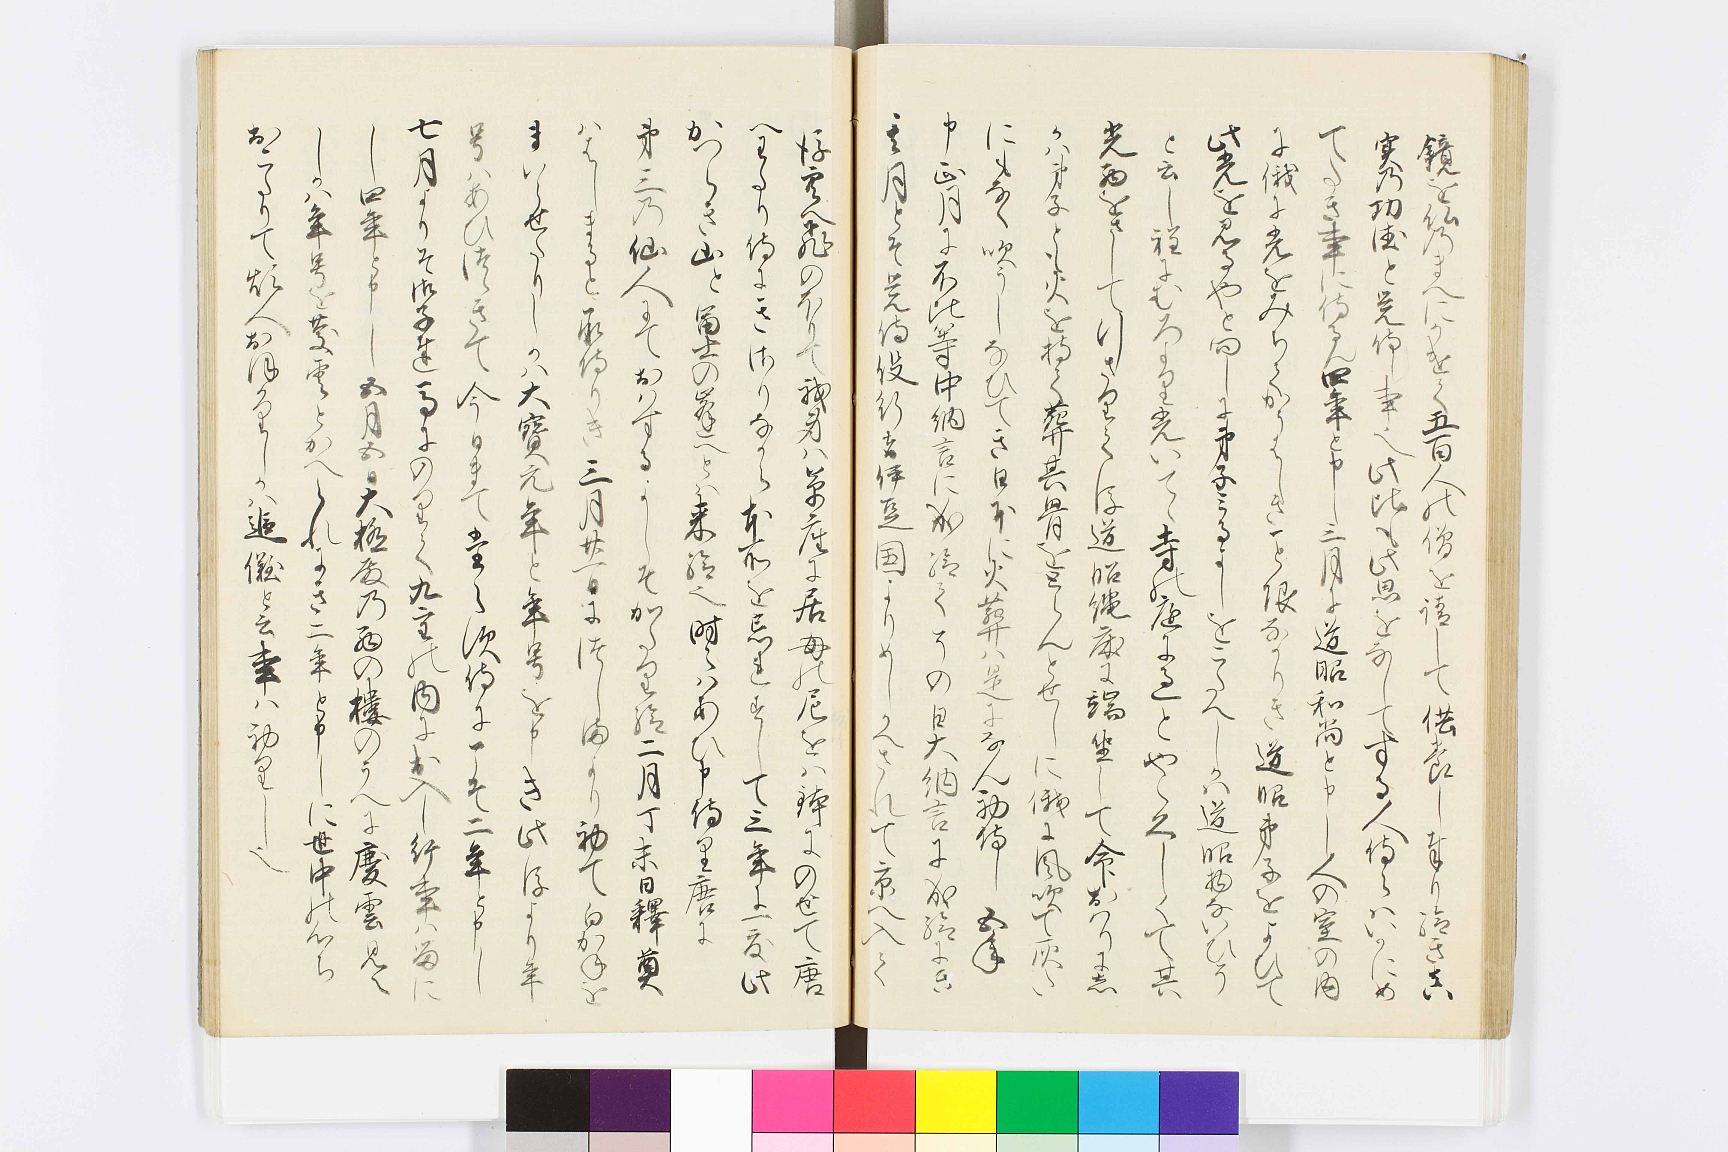 鏡を仏のまへにかけて五百人の僧を請して供養し奉り給き真
実の功徳と覚侍し事也此比も此思をなしてする人侍らはいかにめ
てたき事に侍らん四年と申し三月に道昭和尚と申し人の室の内
に俄に光をみちてかうはしき事限なかりき道昭弟子をよひて
此光を見るやと問しに弟子みるよしをこたへしかは道昭物ないひそ
と云し程にむろより光いてて寺の庭にめくりとやや久しくて其
光西をさして行さりてのち道昭縄床に端坐して命おはりに
かは弟子とも火を持て葬其骨をとらんとせしに俄に風吹て灰た
にもなく吹うしなひてき日本に火葬は是になん初侍し 五年と
申正月に不比等中納言に成給てその日大納言に成給にき
其月とそ覚侍役行者伊豆国よりめしかへされて京へ入て
後空へ飛のほりて我身は草座に居母の尼をは鉢にのせて唐
へわたり侍にきさりなから本所を忘れすして三年に一度此
かつらき山と富士の峯へとは来給也時々はあひ申侍り唐に
第三の仙人にておはするよしそかたり給二月丁未日釈奠
ははしまると承侍りき三月廿一日につしまより初て白かねを
まいらせたりしかは大宝元年と年号を申き此のちより年
号はあひつつきて今日まてたえす侍にこそ二年と申し
七月よりそ御子達馬にのりて九重の内に出入し給事は留に
し四年と申し五月五日大極殿の西の楼のうへに慶雲見え
しかは年号を慶雲とかへられにき二年と申しに世中の心ち
おこりて煩人おほかりしかは追儺と云事は初りし也